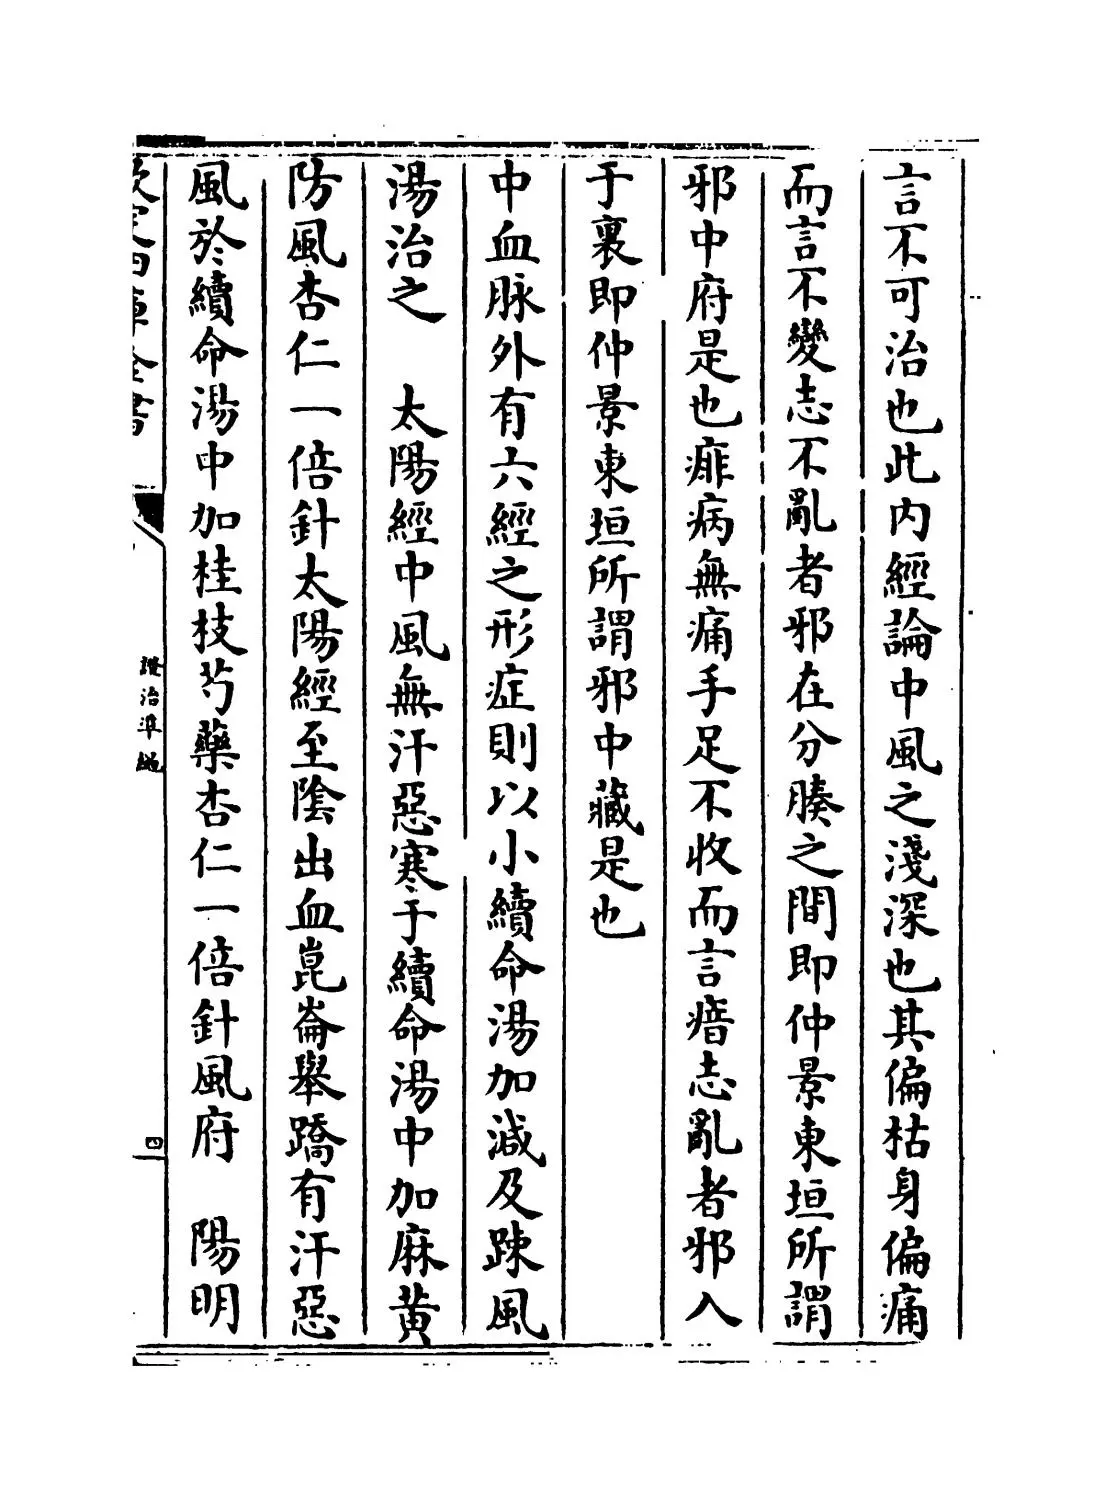 言不可治也此内經論中風之淺深也其偏枯身偏痛
而言不變志不亂者邪在分腠之間即仲景東垣所謂
邪中府是也痱病無痛手足不收而言瘖志亂者邪入
于裏即仲景東垣所謂邪中藏是也
中血脉外有六經之形症則以小續命湯加減及踈風
湯治之　太陽經中風無汗惡寒于續命湯中加麻黄
防風杏仁一倍針太陽經至陰出血崑崙舉蹻有汗惡
風於續命湯中加桂枝芍藥杏仁一倍針風府　陽明
欽定四庫全書
證治準繩
四